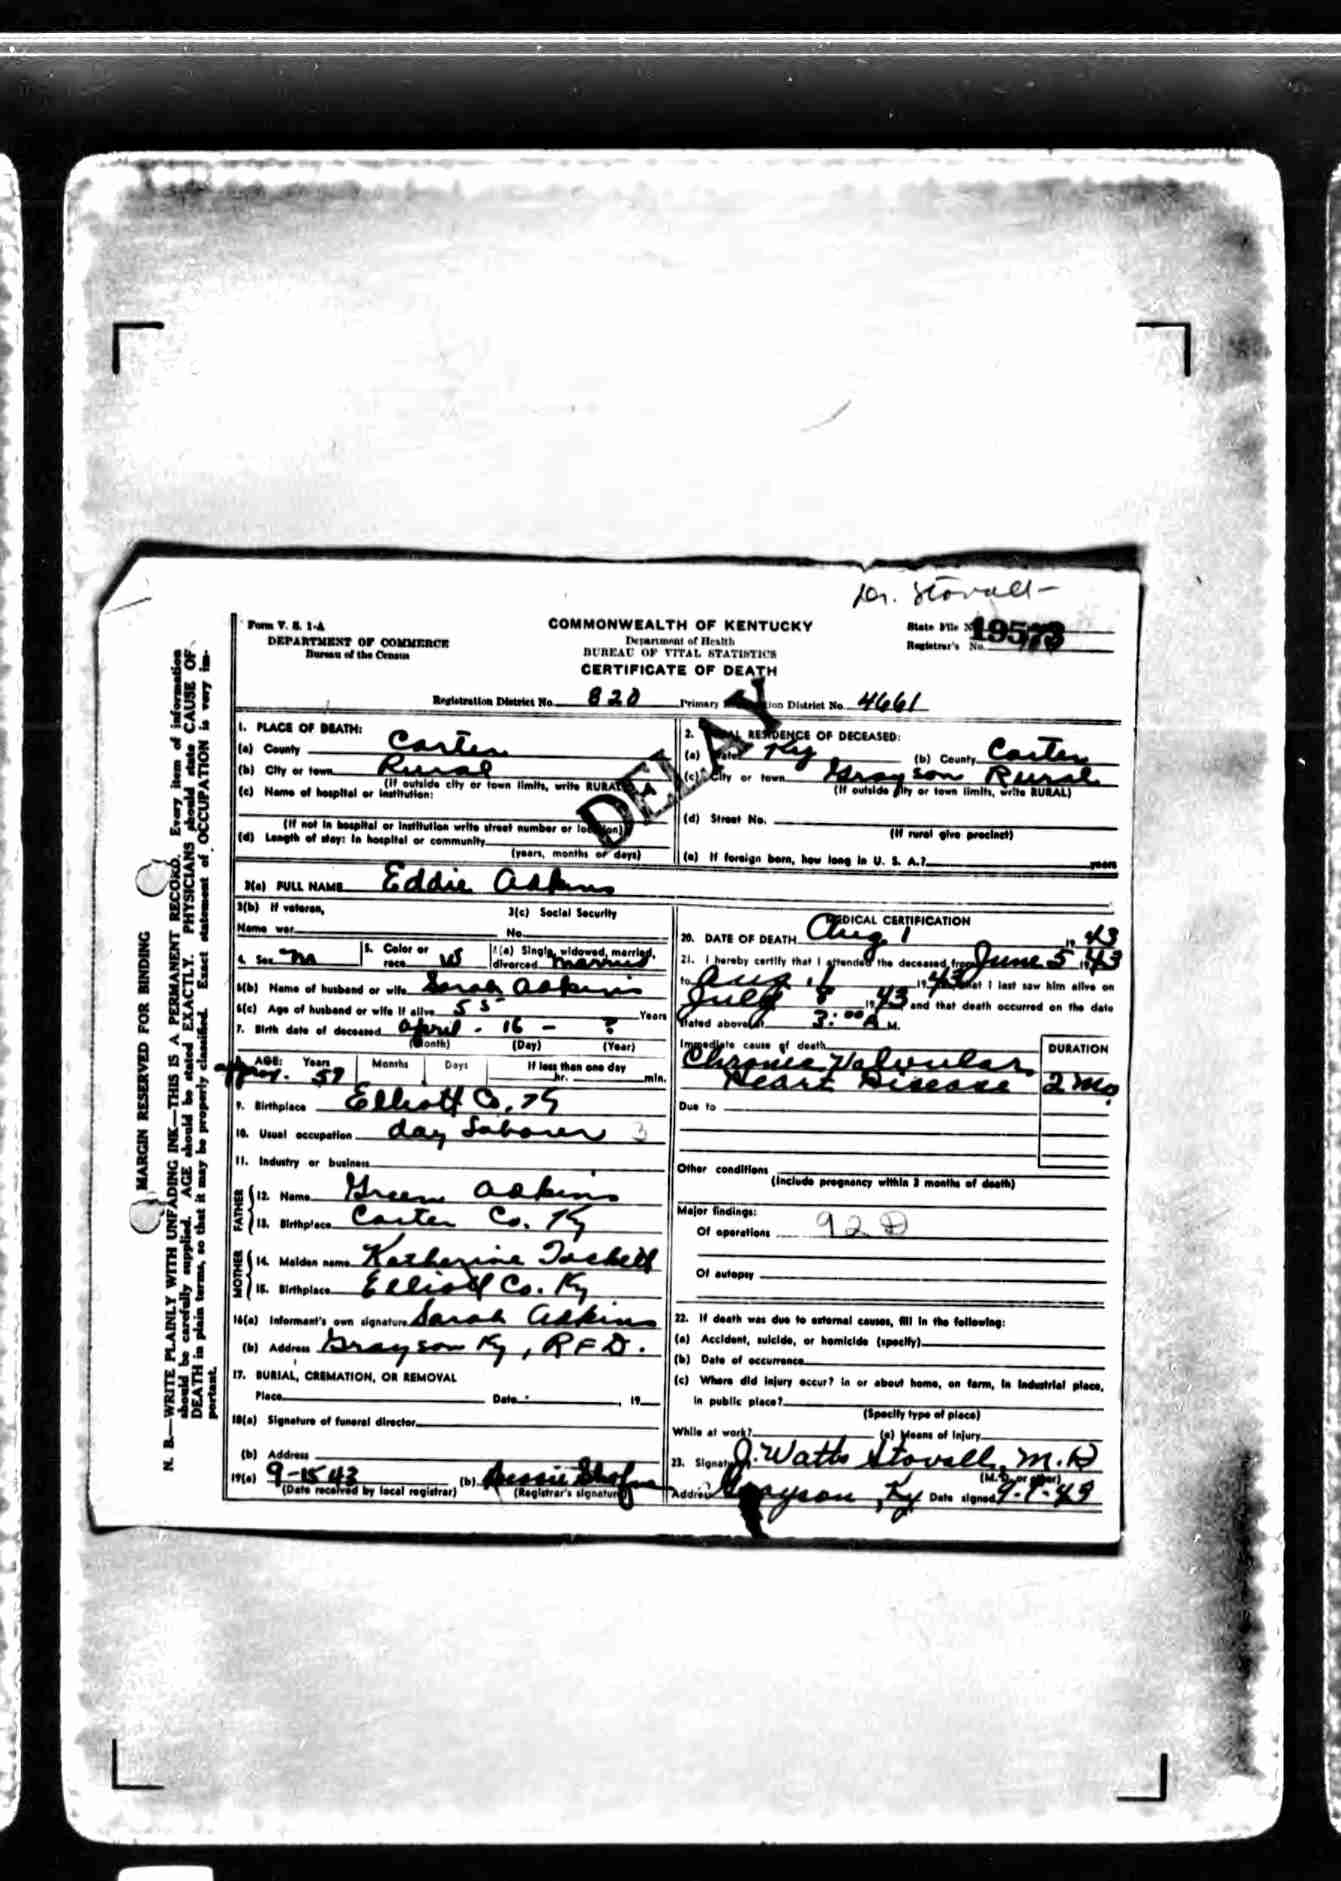 Dr. Stovall-
Form V. S. 1-A
DEPARTMENT OF COMMERCE
Bureau of the Census
COMMONWEALTH OF KENTUCKY
Department of Health
BUREAU OF VITAL STATISTICS
CERTIFICATE OF DEATH
State File No. 19573
Registrar's No.
Registration District No. 820 Primary Registration District No. 4661
DELAY
1. PLACE OF DEATH:
(a) County Carter
(b) City or town Rural
(If outside city or town limits, write RURAL)
(c) Name of hospital or institution:
(If not in hospital or institution write street number or location)
(d) Length of stay: In hospital or community
(years, months or days)
2. USUAL RESIDENCE OF DECEASED:
(a) State Ky (b) County Carter
(c) City or town Grayson Rural
(If outside city or town limits, write RURAL)
(d) Street No.
(If rural give precinct)
(e) If foreign born, how long in U. S. A.? years
3(a) FULL NAME Eddie Adkins
3(b) If veteran,
Name war
3(c) Social Security
No.
4. Sex M
5. Color or race W
6(a) Single, widowed, married, divorced Married
6(b) Name of husband or wife Sarah Adkins
6(c) Age of husband or wife if alive 55 Years
7. Birth date of deceased April - 16 - ?
(Month) (Day) (Year)
AGE: Years Months Days If less than one day
approx. 57 hr. min.
9. Birthplace Elliott Co. Ky
10. Usual occupation day Laborer 3
11. Industry or business
FATHER
12. Name Green Adkins
13. Birthplace Carter Co. Ky
MOTHER
14. Maiden name Katherine
15. Birthplace Elliott Co. Ky
16(a) Informant's own signature Sarah Adkins
(b) Address Grayson Ky, RFD.
17. BURIAL, CREMATION, OR REMOVAL
Place Date , 19
18(a) Signature of funeral director
(b) Address
19(a) 9-15 43 (b) Bessie
(Date received by local registrar) (Registrar's signature)
MEDICAL CERTIFICATION
20. DATE OF DEATH Aug 1 19 43
21. I hereby certify that I attended the deceased from June 5 19 43
to Aug. 1 19 43, that I last saw him alive on
July 8 19 43 and that death occurred on the date
stated above at 3:00 A M.
Immediate cause of death
Chronic Valvular
Heart Disease
DURATION
2 mo.
Due to
Other conditions
(Include pregnancy within 3 months of death)
Major findings:
Of operations 92 D
Of autopsy
22. If death was due to external causes, fill in the following:
(a) Accident, suicide, or homicide (specify)
(b) Date of occurrence
(c) Where did injury occur? in or about home, on farm, in industrial place,
in public place?
(Specify type of place)
While at work? (e) Means of injury
23. Signature J. Watts Stovall, M.D
(M. D. or other)
Address Grayson, Ky Date signed 9-9-43
MARGIN RESERVED FOR BINDING
N. B.—WRITE PLAINLY WITH UNFADING INK—THIS IS A PERMANENT RECORD. Every item of information
should be carefully supplied. AGE should be stated EXACTLY. PHYSICIANS should state CAUSE OF
DEATH in plain terms, so that it may be properly classified. Exact statement of OCCUPATION is very im-
portant.